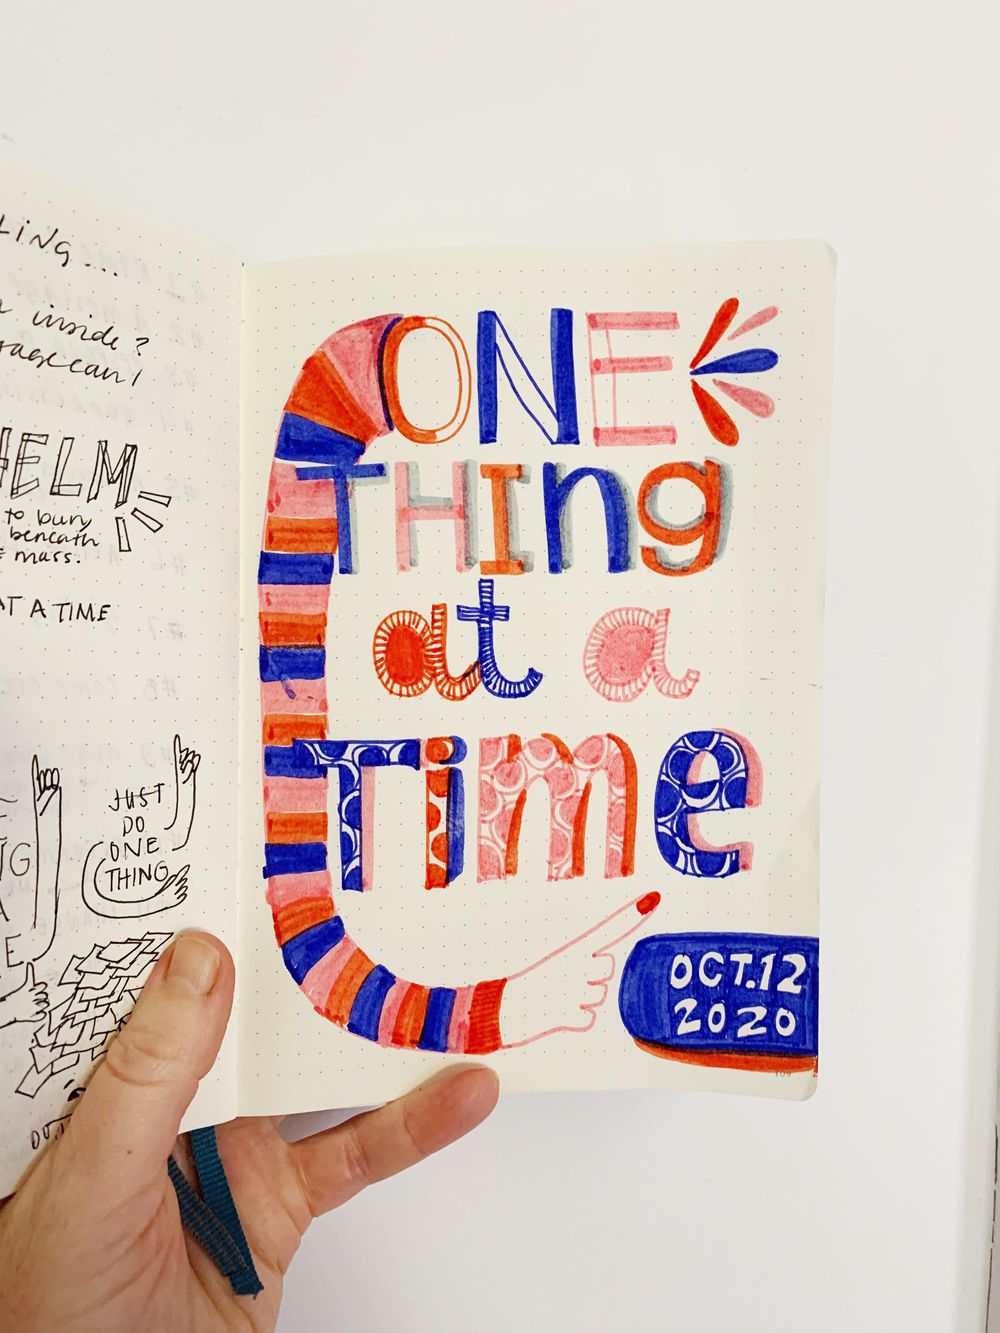 LING...
inside?
can I
HELM
to bury
beneath
mass.
AT A TIME
JUST
DO
ONE
THING
ONE
THING
at a
Time
OCT.12
2020